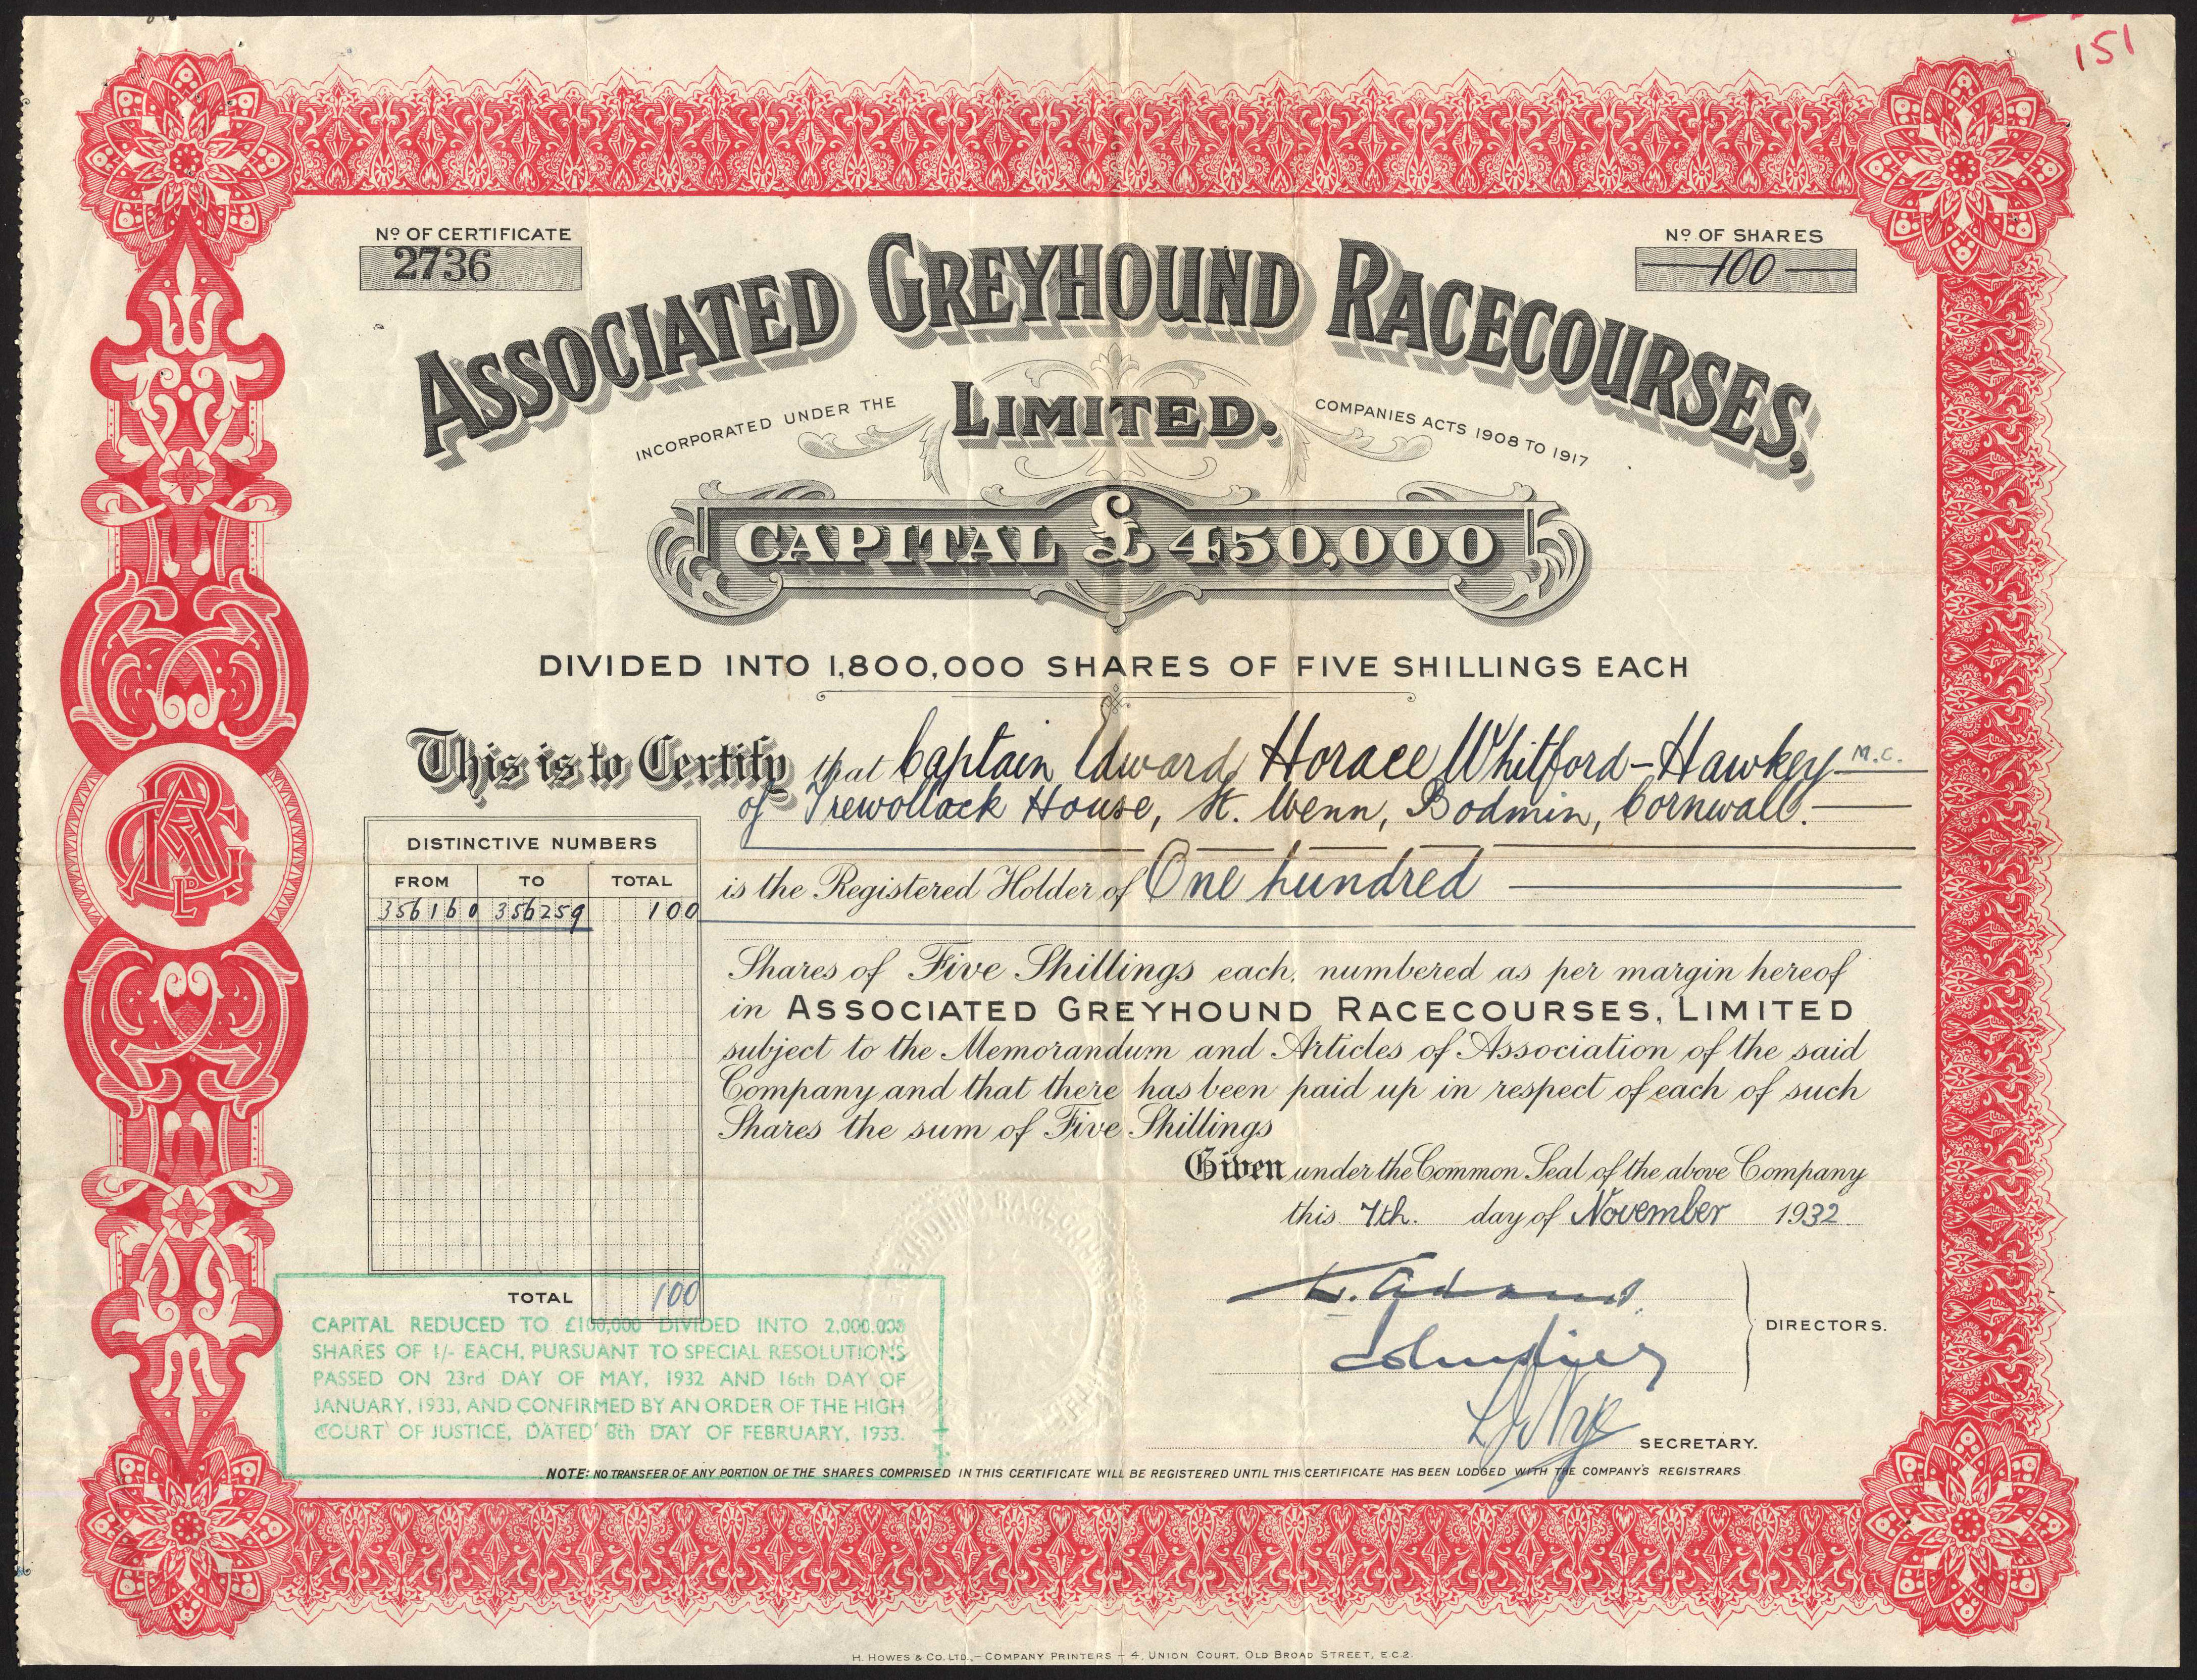 151
Nº OF CERTIFICATE
2736
Nº OF SHARES
100
ASSOCIATED GREYHOUND RACECOURSES,
LIMITED.
INCORPORATED UNDER THE COMPANIES ACTS 1908 TO 1917
CAPITAL £450,000
DIVIDED INTO 1,800,000 SHARES OF FIVE SHILLINGS EACH
This is to Certify that Captain Edward Horace Whitford-Hawkey M.C.
of Trewollack House, St. Wenn, Bodmin, Cornwall.
DISTINCTIVE NUMBERS
FROM TO TOTAL
356160 356259 100
is the Registered Holder of One hundred
Shares of Five Shillings each, numbered as per margin hereof
in ASSOCIATED GREYHOUND RACECOURSES, LIMITED
subject to the Memorandum and Articles of Association of the said
Company and that there has been paid up in respect of each of such
Shares the sum of Five Shillings
Given under the Common Seal of the above Company
this 7th. day of November 1932
TOTAL 100
DIRECTORS.
SECRETARY.
CAPITAL REDUCED TO £100,000 DIVIDED INTO 2,000,000
SHARES OF 1/- EACH, PURSUANT TO SPECIAL RESOLUTIONS
PASSED ON 23rd DAY OF MAY, 1932 AND 16th DAY OF
JANUARY, 1933, AND CONFIRMED BY AN ORDER OF THE HIGH
COURT OF JUSTICE, DATED 8th DAY OF FEBRUARY, 1933.
NOTE: NO TRANSFER OF ANY PORTION OF THE SHARES COMPRISED IN THIS CERTIFICATE WILL BE REGISTERED UNTIL THIS CERTIFICATE HAS BEEN LODGED WITH THE COMPANY'S REGISTRARS
H. HOWES & CO. LTD.,—COMPANY PRINTERS—4, UNION COURT, OLD BROAD STREET, E.C.2.